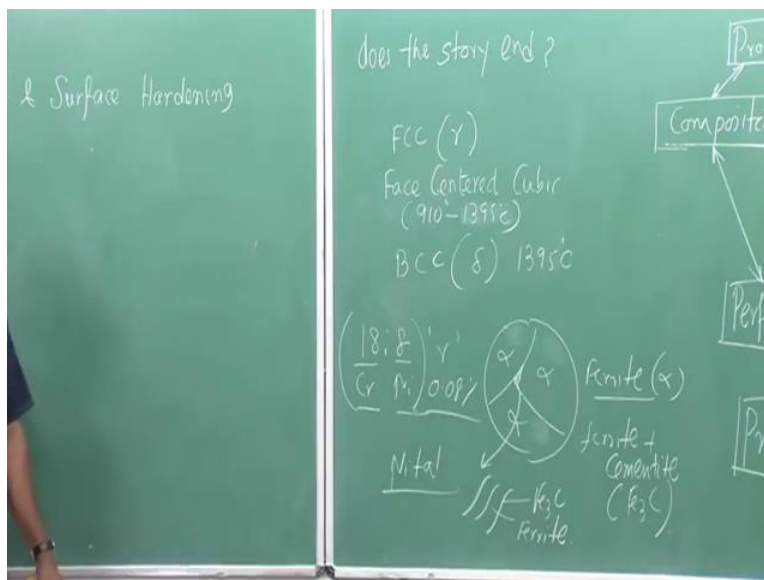 & Surface Hardening
does the story end?
FCC (γ)
Face Centered Cubic
(910°-1395°c)
BCC (δ) 1395°C
(18:8) 'γ'
Cr Ni 0.08%
α α
α
Ferrite (α)
ferrite +
Cementite
(Fe3C)
Nital
Fe3C
Ferrite
Pro
Composite
Perf
Pr